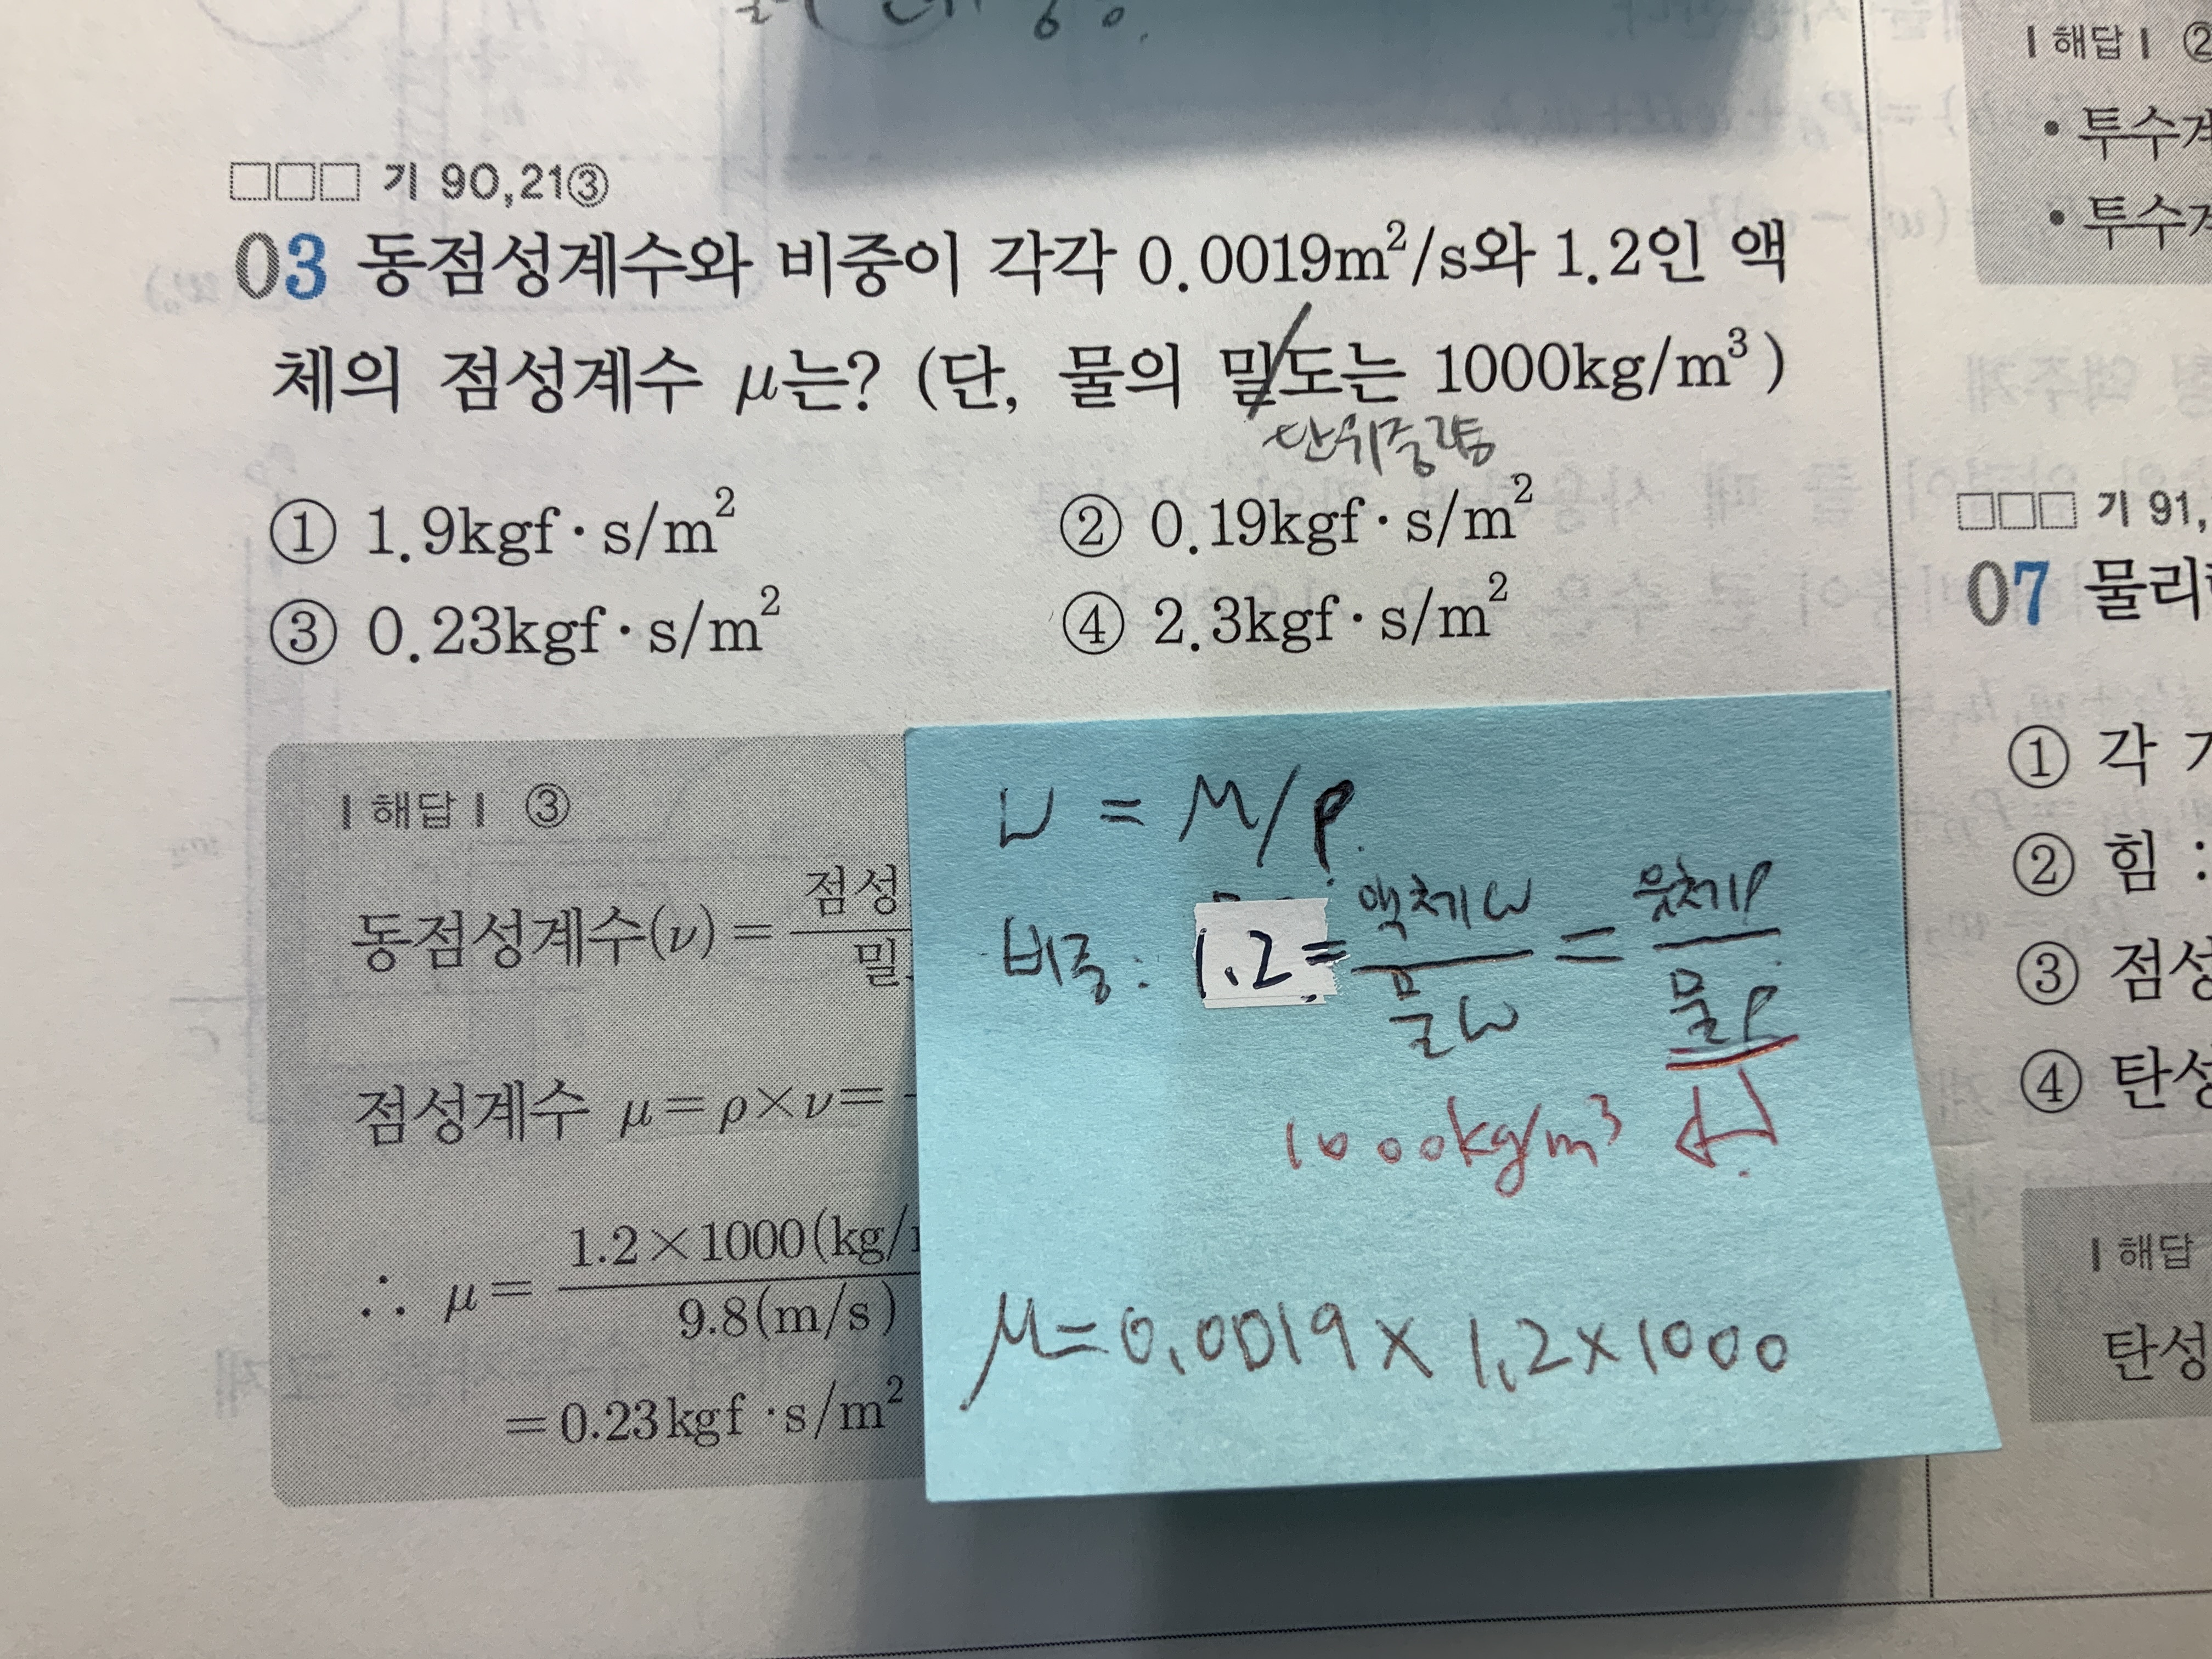 기 90,21③
03 동점성계수와 비중이 각각 0.0019m²/s와 1.2인 액
체의 점성계수 μ는? (단, 물의 밀도는 1000kg/m³)
단위중량
① 1.9kgf·s/m² ② 0.19kgf·s/m²
③ 0.23kgf·s/m² ④ 2.3kgf·s/m²
| 해답 | ③
동점성계수(ν) = 점성 / 밀
점성계수 μ = ρ×ν =
∴ μ = 1.2×1000(kg/ / 9.8(m/s)
= 0.23kgf·s/m²
ν = μ/ρ
비중 : 1.2 = 액체ω / 물ω = 유체ρ / 물ρ
1000kg/m³
μ = 0.0019 × 1.2 × 1000
| 해답 | ②
• 투수계
• 투수계
기 91,
07 물리
① 각
② 힘 :
③ 점성
④ 탄성
| 해답
탄성